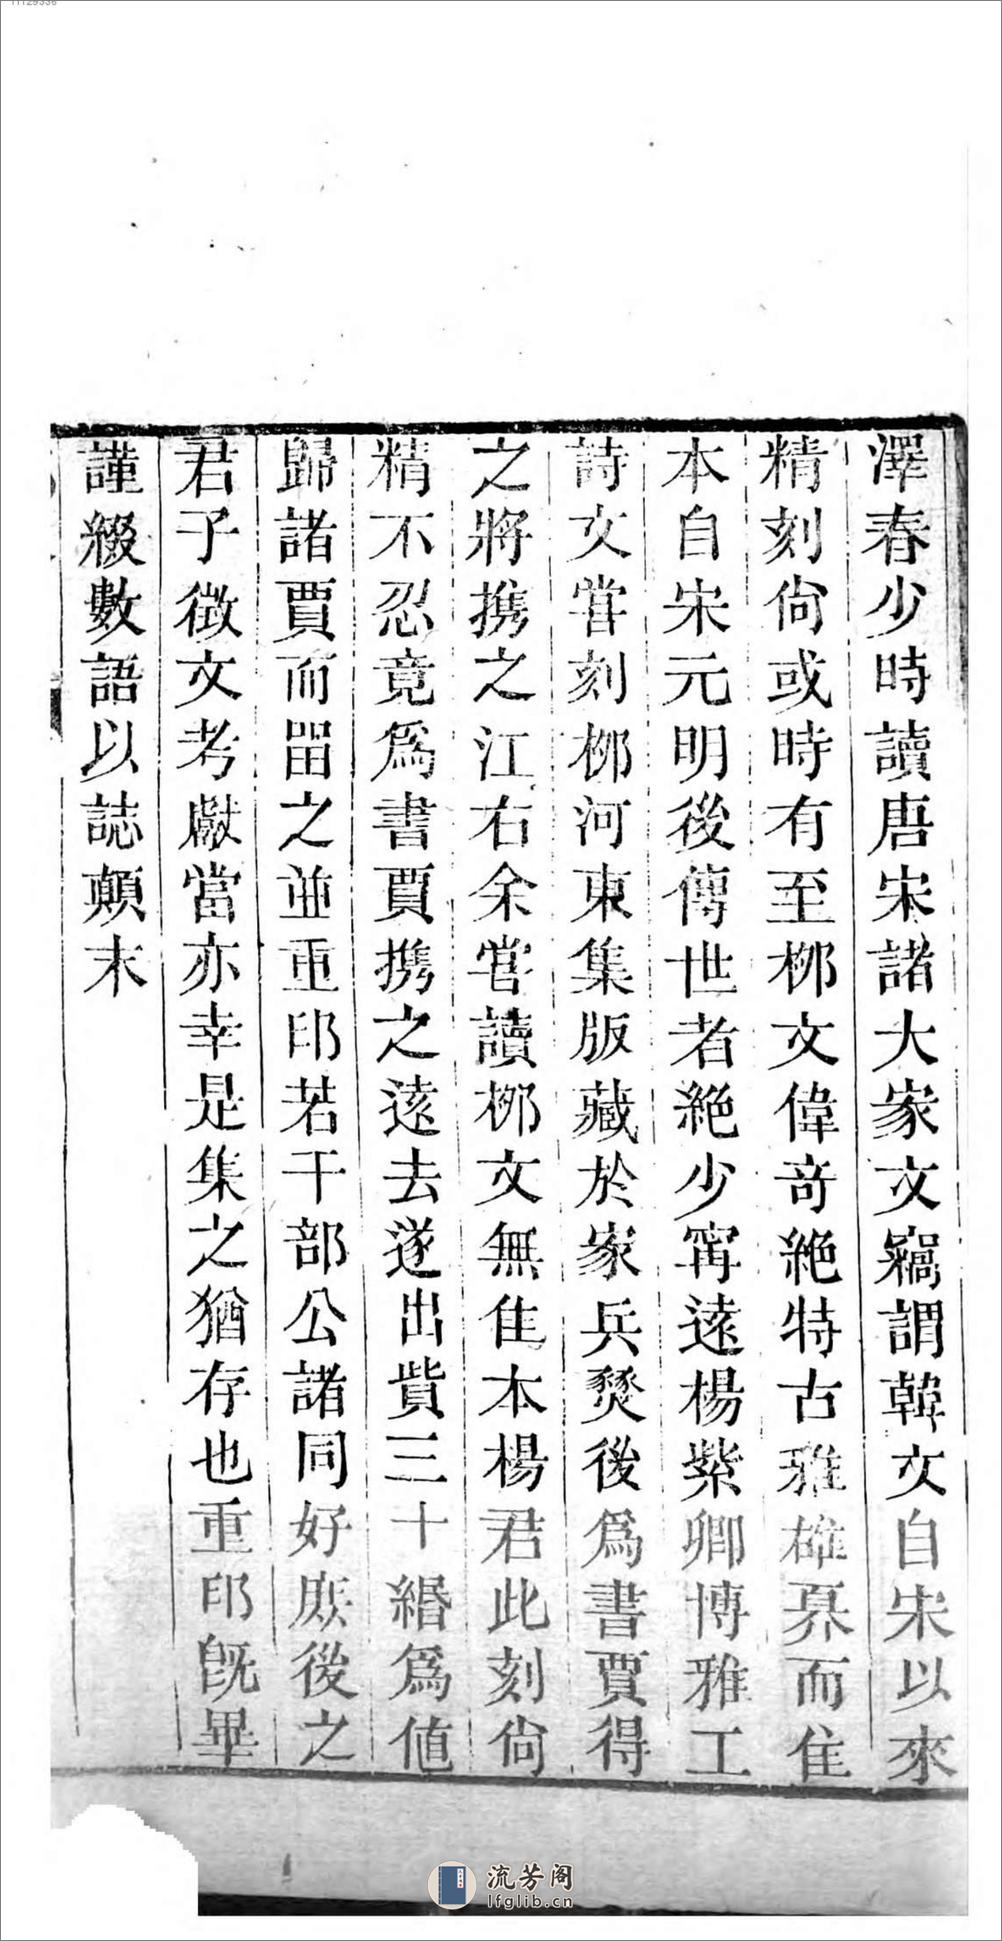 11129336
澤春少時讀唐宋諸大家文竊謂韓文自宋以來
精刻尙或時有至桞文偉竒絶特古雅雄奡而隹
本自宋元明後傳世者絶少甯遠楊紫卿博雅工
詩文甞刻桞河東集版藏於家兵燹後爲書賈得
之將携之江右余甞讀桞文無隹本楊君此刻尙
精不忍竟爲書賈携之遠去遂出貲三十緡爲值
歸諸賈而畱之並重印若干部公諸同好庻後之
君子徴文考獻當亦幸是集之猶存也重印旣畢
謹綴數語以誌顛末
流芳阁
lfglib.cn